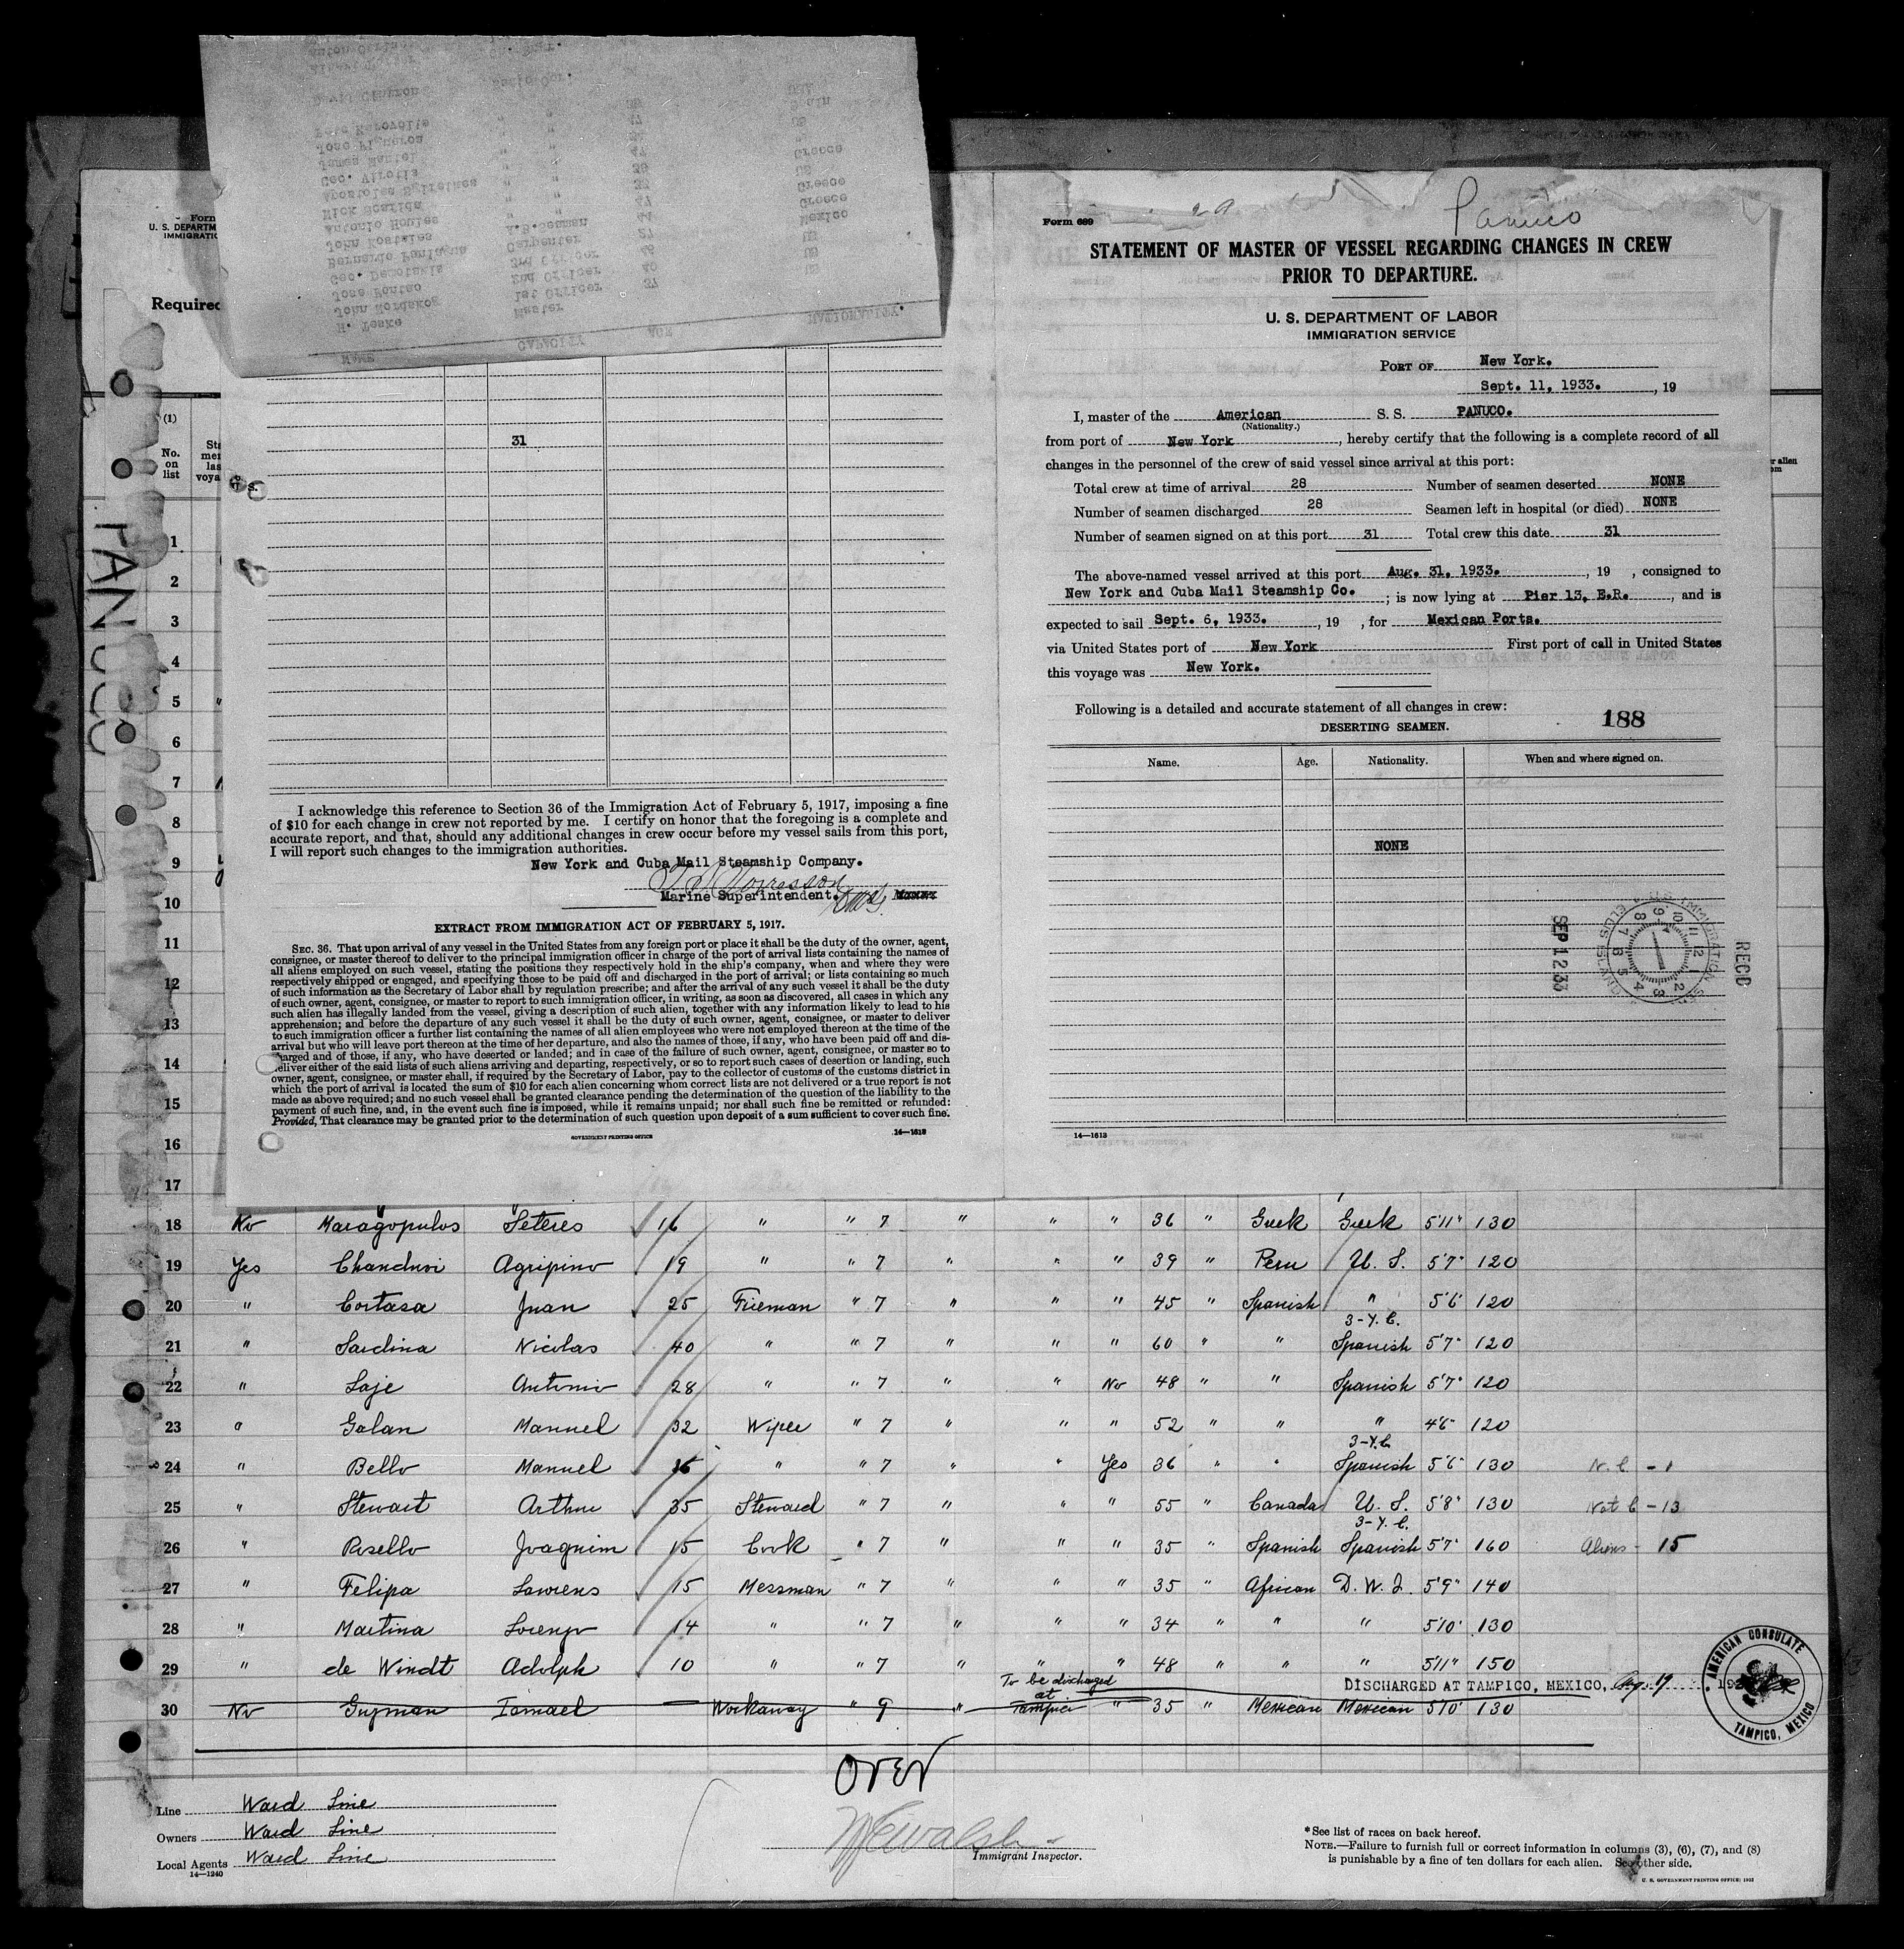 Form
U. S. DEPARTM
IMMIGRATIO
Required
(1)
No.
on
list
PANUCO
NAME CAPACITY AGE NATIONALITY.
H. Teske Master 37 US
John Nordskog 1st Officer 40 US
Jose Fontao 2nd Officer
Geo. Dezotakis 3rd Officer
Carpenter 27 Mexico
John Kostales A.B.Seaman 44 Greece
31
I acknowledge this reference to Section 36 of the Immigration Act of February 5, 1917, imposing a fine
of $10 for each change in crew not reported by me. I certify on honor that the foregoing is a complete and
accurate report, and that, should any additional changes in crew occur before my vessel sails from this port,
I will report such changes to the immigration authorities.
New York and Cuba Mail Steamship Company.
Marine Superintendent.
EXTRACT FROM IMMIGRATION ACT OF FEBRUARY 5, 1917.
SEC. 36. That upon arrival of any vessel in the United States from any foreign port or place it shall be the duty of the owner, agent,
consignee, or master thereof to deliver to the principal immigration officer in charge of the port of arrival lists containing the names of
all aliens employed on such vessel, stating the positions they respectively hold in the ship's company, when and where they were
respectively shipped or engaged, and specifying those to be paid off and discharged in the port of arrival; or lists containing so much
of such information as the Secretary of Labor shall by regulation prescribe; and after the arrival of any such vessel it shall be the duty
of such owner, agent, consignee, or master to report to such immigration officer, in writing, as soon as discovered, all cases in which any
such alien has illegally landed from the vessel, giving a description of such alien, together with any information likely to lead to his
apprehension; and before the departure of any such vessel it shall be the duty of such owner, agent, consignee, or master to deliver
to such immigration officer a further list containing the names of all alien employees who were not employed thereon at the time of the
arrival but who will leave port thereon at the time of her departure, and also the names of those, if any, who have been paid off and dis-
charged and of those, if any, who have deserted or landed; and in case of the failure of such owner, agent, consignee, or master so to
deliver either of the said lists of such aliens arriving and departing, respectively, or so to report such cases of desertion or landing, such
owner, agent, consignee, or master shall, if required by the Secretary of Labor, pay to the collector of customs of the customs district in
which the port of arrival is located the sum of $10 for each alien concerning whom correct lists are not delivered or a true report is not
made as above required; and no such vessel shall be granted clearance pending the determination of the question of the liability to the
payment of such fine, and, in the event such fine is imposed, while it remains unpaid; nor shall such fine be remitted or refunded:
Provided, That clearance may be granted prior to the determination of such question upon deposit of a sum sufficient to cover such fine.
GOVERNMENT PRINTING OFFICE 14—1613
Panuco
Form 689
STATEMENT OF MASTER OF VESSEL REGARDING CHANGES IN CREW
PRIOR TO DEPARTURE.
U. S. DEPARTMENT OF LABOR
IMMIGRATION SERVICE
PORT OF New York.
Sept. 11, 1933. , 19
I, master of the American S. S. PANUCO.
(Nationality.)
from port of New York , hereby certify that the following is a complete record of all
changes in the personnel of the crew of said vessel since arrival at this port:
Total crew at time of arrival 28 Number of seamen deserted NONE
Number of seamen discharged 28 Seamen left in hospital (or died) NONE
Number of seamen signed on at this port 31 Total crew this date 31
The above-named vessel arrived at this port Aug. 31, 1933. , 19 , consigned to
New York and Cuba Mail Steamship Co. ; is now lying at Pier 13, E.R. , and is
expected to sail Sept. 6, 1933. , 19 , for Mexican Ports.
via United States port of New York First port of call in United States
this voyage was New York.
Following is a detailed and accurate statement of all changes in crew:
DESERTING SEAMEN. 188
Name. Age. Nationality. When and where signed on.
NONE
SEP 12 33
RECD
14—1613
1
2
3
4
5
6
7
8
9
10
11
12
13
14
15
16
17
18 No Maragopulos Seteres 16 " " 7 " " " 36 " Greek Greek 5'11" 130
19 Yes Chanduvi Agripino 19 " " 7 " " " 39 " Peru U. S. 5'7" 120
20 " Cortasa Juan 25 Fireman " 7 " " " 45 " Spanish " 5'6 120
3-Y. C.
21 " Sardina Nicolas 40 " " 7 " " " 60 " " Spanish 5'7" 120
22 " Laje Antonio 28 " " 7 " " No 48 " " Spanish 5'7" 120
23 " Galan Manuel 32 Wiper " 7 " " " 52 " " " 4'6" 120
3-Y.C.
24 " Bello Manuel 16 " " 7 " " Yes 36 " " Spanish 5'6" 130 N. C - 1
25 " Stewart Arthur 35 Steward " 7 " " " 55 " Canada U. S. 5'8" 130 Nat C - 13
3-Y. C.
26 " Rosello Joaquim 15 Cook " 7 " " " 35 " Spanish Spanish 5'7" 160 Aliens - 15
27 " Felipa Lawrens 15 Messman " 7 " " " 35 " African D. W. I. 5'9" 140
28 " Martina Lorenzo 14 " " 7 " " " 34 " " " 5'10" 130
29 " de Windt Adolph 10 " " 7 " " " 48 " " " 5'11" 150
To be discharged at Tampico
DISCHARGED AT TAMPICO, MEXICO, Aug. 17
30 No Guzman Ismael Workaway " 9 " " 35 " Mexican Mexican 5'10" 130
AMERICAN CONSULATE
TAMPICO, MEXICO
OVER
Line Ward Line
Owners Ward Line
Local Agents Ward Line
14—1240
Immigrant Inspector.
*See list of races on back hereof.
NOTE.—Failure to furnish full or correct information in columns (3), (6), (7), and (8)
is punishable by a fine of ten dollars for each alien. See other side.
U. S. GOVERNMENT PRINTING OFFICE: 1932